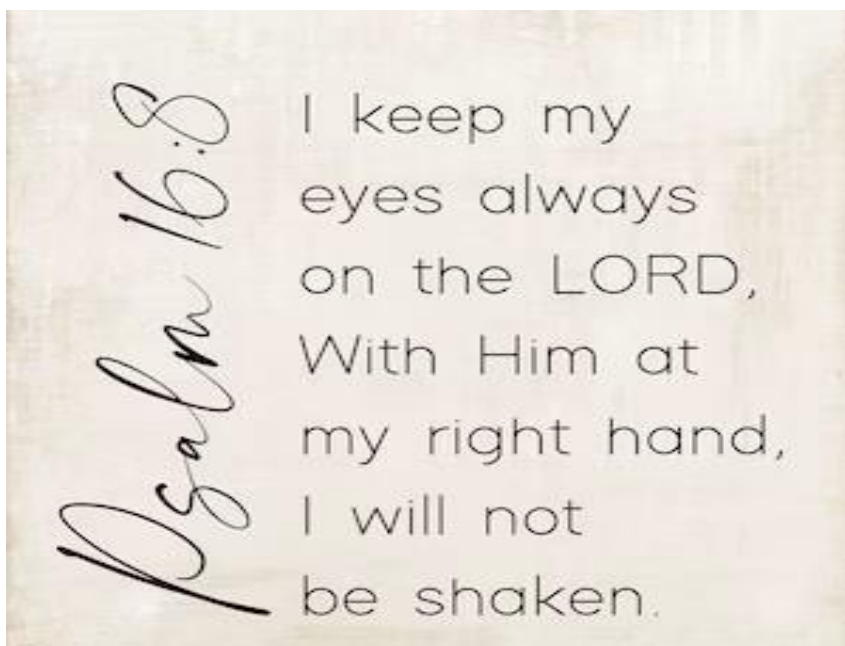 Psalm 16:8
I keep my
eyes always
on the LORD,
With Him at
my right hand,
I will not
be shaken.